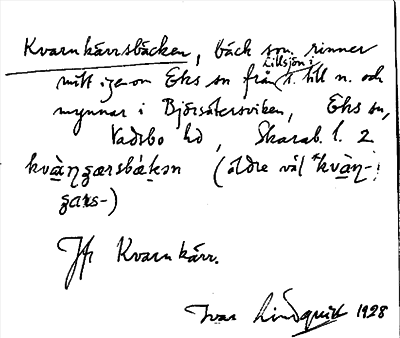 Kvarnkärrsbäcken, bäck som rinner
Lillsjön i
mitt igenom Eks sn från s. till n. och
mynnar i Björsätersviken, Eks sn,
Vadsbo hd, Skarab. l. 2
kvàŋʒærsbækən (äldre väl *kvàn-
ʒærs-)
Jfr Kvarnkärr.
Ivar Lindquist 1928